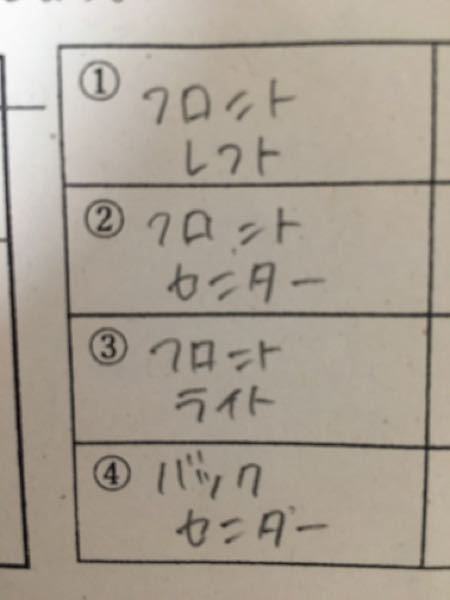 ① フロント
レフト
② フロント
センター
③ フロント
ライト
④ バック
センター